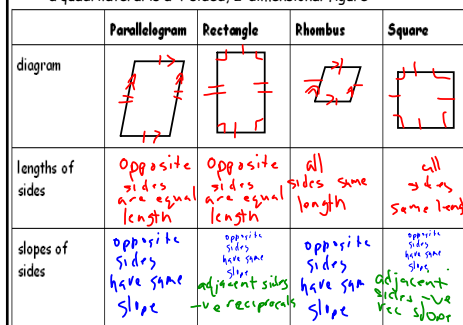 Parallelogram Rectangle Rhombus Square
diagram
lengths of
sides
opposite
sides
are equal
length
opposite
sides
are equal
length
all
sides same
length
all
sides
same
slopes of
sides
opposite
sides
have same
slope
opposite
sides
have same
slope
adjacent sides
-ve reciprocals
opposite
sides
have same
slope
opposite
sides
have same
slope
adjacent
sides -ve
rec slope